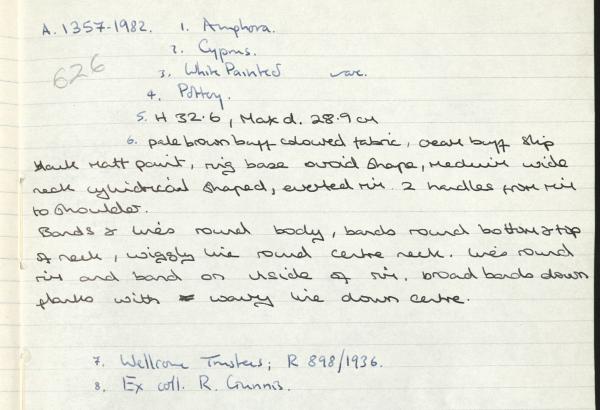 A.1357-1982. 1. Amphora.
2. Cyprus.
626
3. White Painted ware.
4. Pottery.
5. H 32.6, Max d. 28.9 cm
6. pale brown buff coloured fabric, cream buff slip
black matt paint, ring base ovoid shape, medium wide
neck cylindrical shaped, everted rim. 2 handles from rim
to shoulder.
Bands & lines round body, bands round bottom & top
of neck, wiggly line round centre neck. lines round
rim and band on inside of rim, broad bands down
flanks with wavy line down centre.
7. Wellcome Trustees; R 898/1936.
8. Ex coll. R. Gunnis.